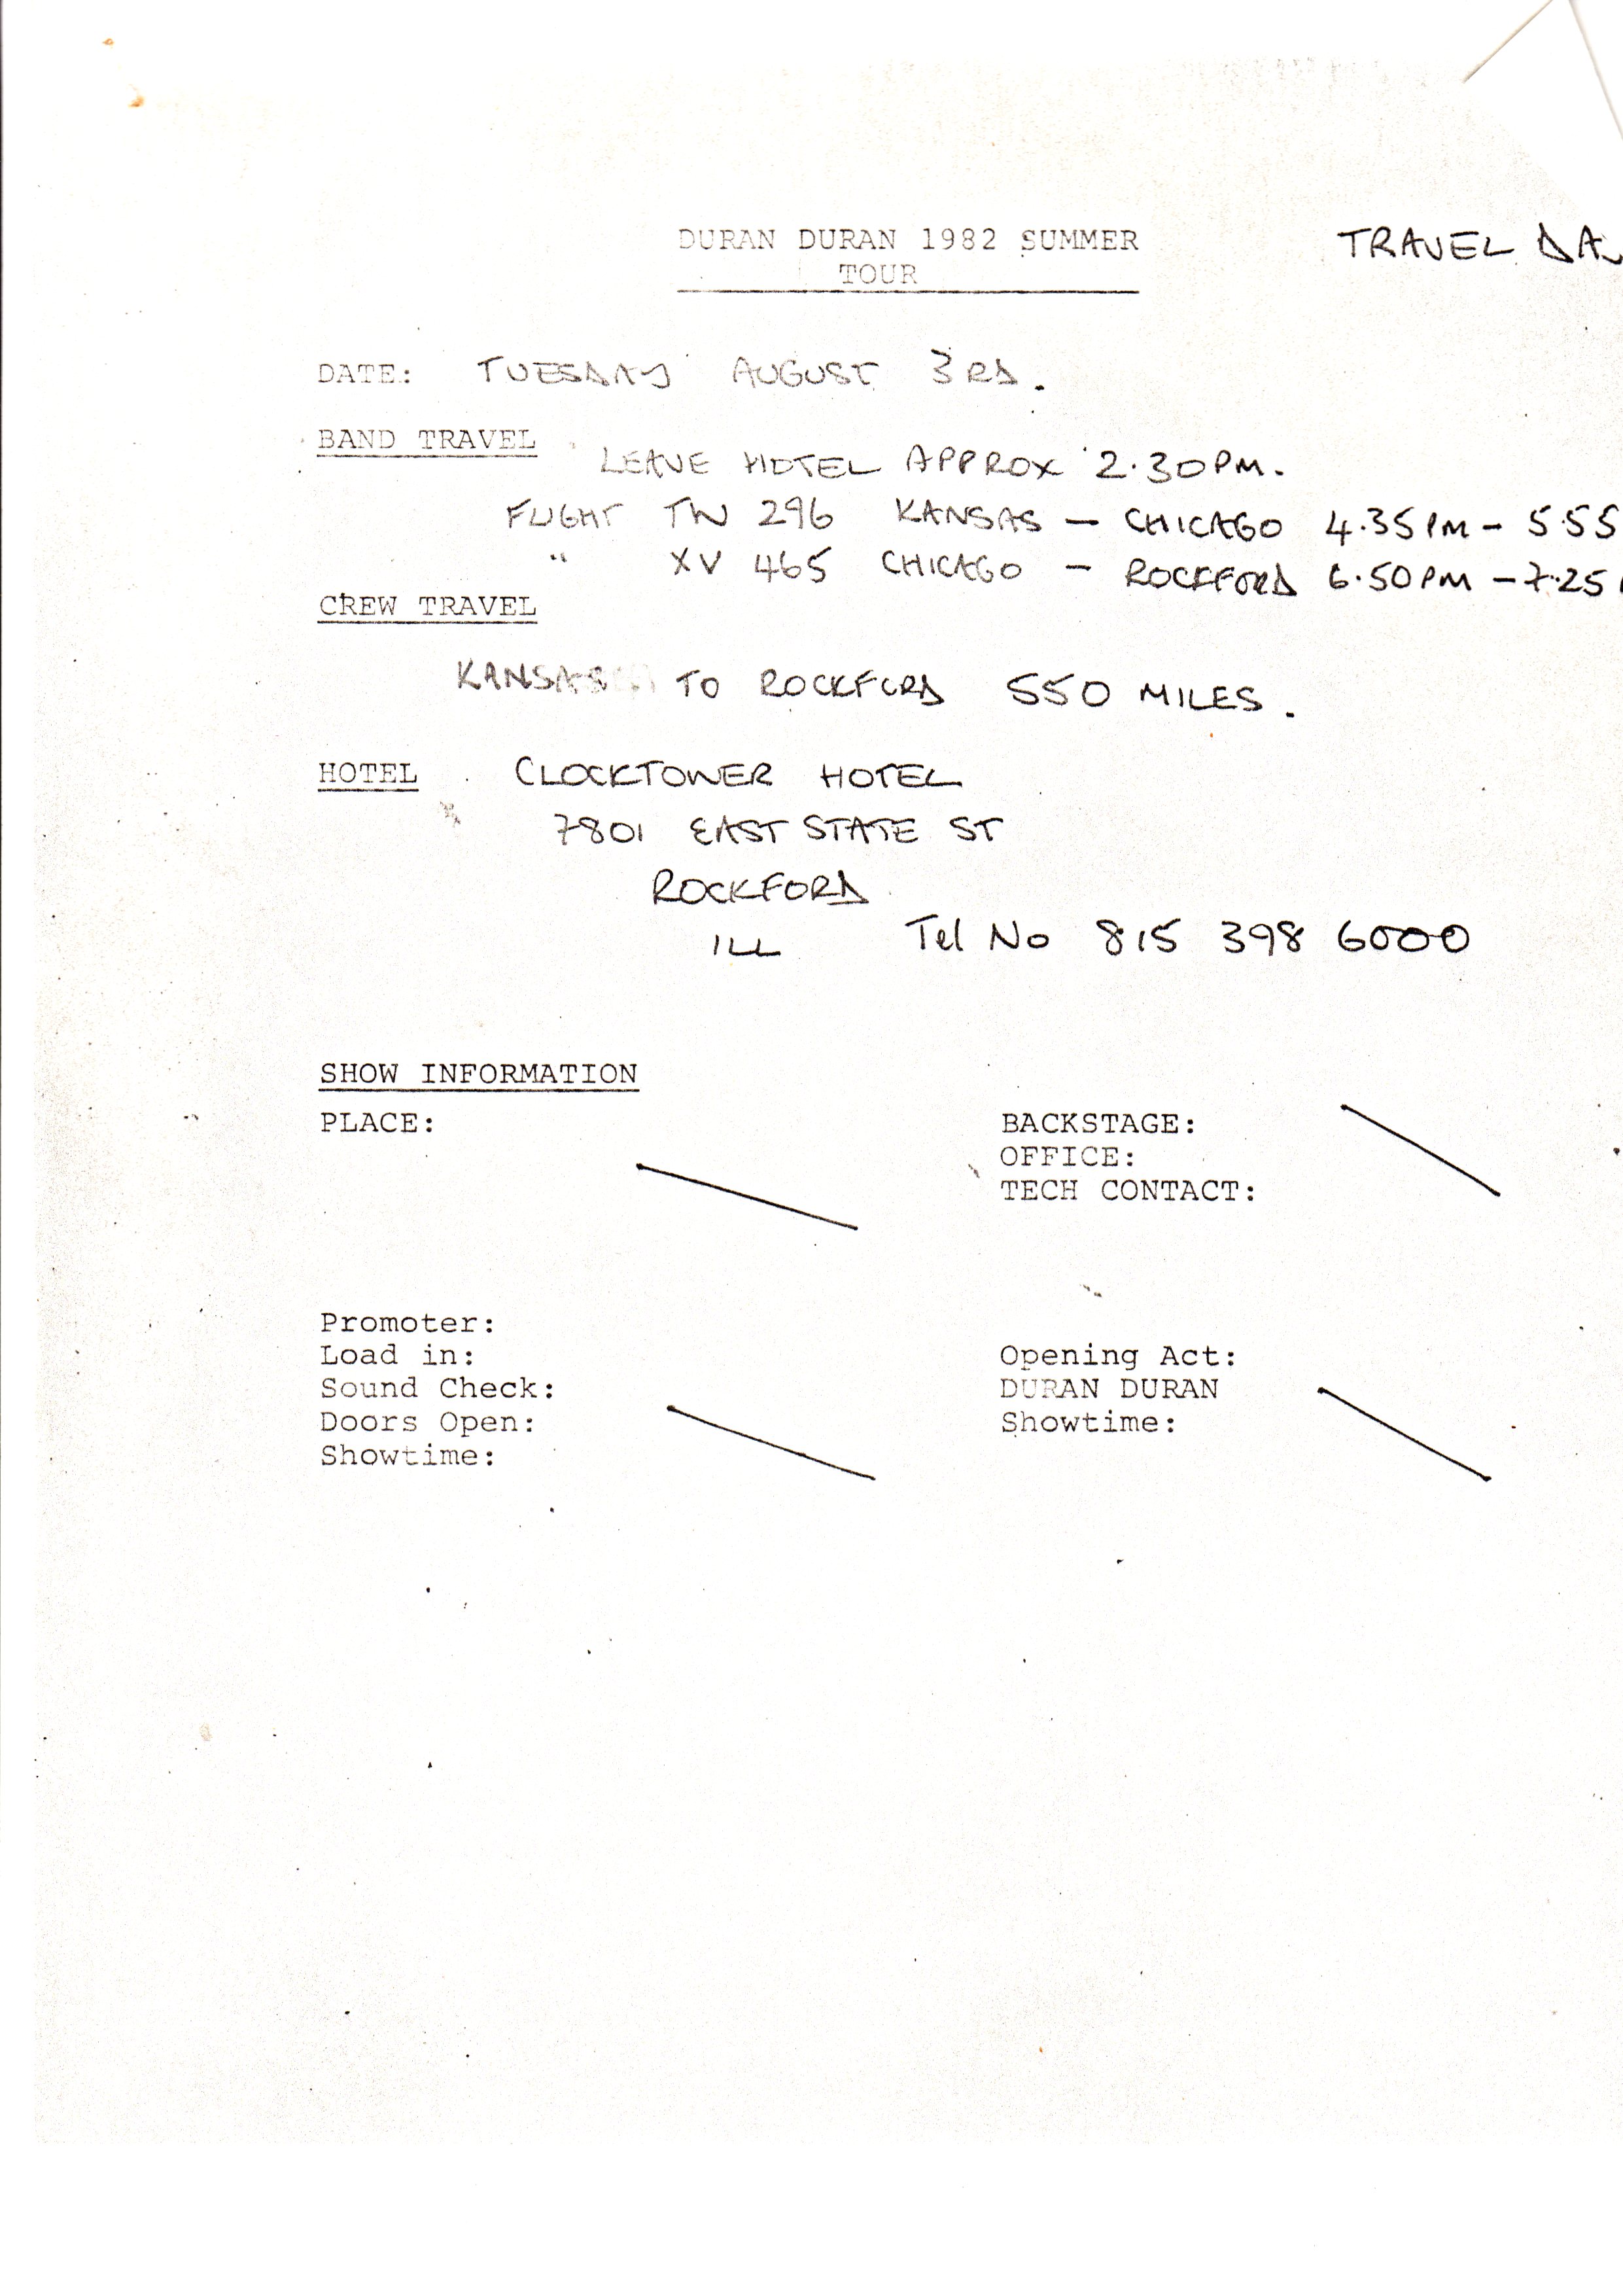 DURAN DURAN 1982 SUMMER
TOUR
TRAVEL DA
DATE: TUESDAY AUGUST 3RD.
BAND TRAVEL
LEAVE HOTEL APPROX 2.30PM.
FLIGHT TW 296 KANSAS - CHICAGO 4.35PM - 5.55
" XV 465 CHICAGO - ROCKFORD 6.50PM - 7.25
CREW TRAVEL
KANSAS TO ROCKFORD 550 MILES.
HOTEL CLOCKTOWER HOTEL
7801 EAST STATE ST
ROCKFORD
ILL Tel No 815 398 6000
SHOW INFORMATION
PLACE:
BACKSTAGE:
OFFICE:
TECH CONTACT:
Promoter:
Load in:
Sound Check:
Doors Open:
Showtime:
Opening Act:
DURAN DURAN
Showtime: